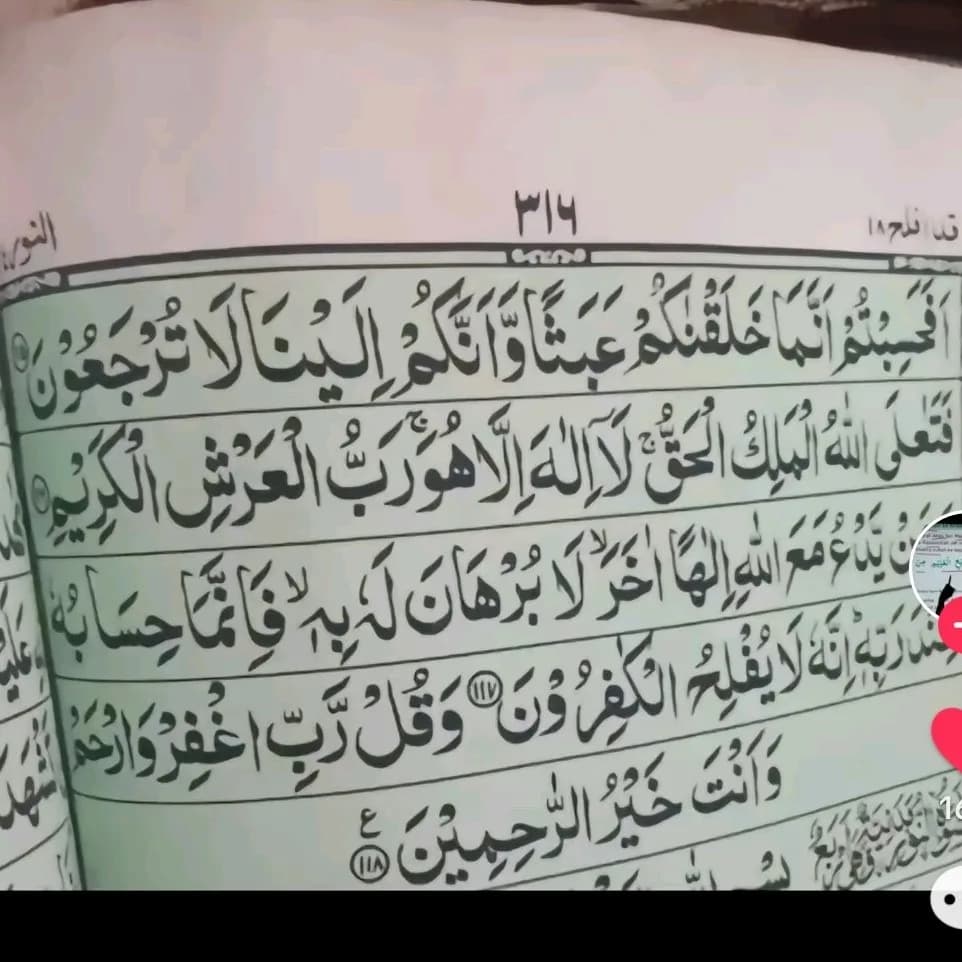 قد افلح ۱۸
۳۱۶
النور
اَفَحَسِبْتُمْ اَنَّمَا خَلَقْنٰكُمْ عَبَثًا وَّاَنَّكُمْ اِلَيْنَا لَا تُرْجَعُوْنَ
فَتَعٰلَى اللّٰهُ الْمَلِكُ الْحَقُّ ۚ لَآ اِلٰهَ اِلَّا هُوَ ۚ رَبُّ الْعَرْشِ الْكَرِيْمِ
يَّدْعُ مَعَ اللّٰهِ اِلٰهًا اٰخَرَ ۙ لَا بُرْهَانَ لَهٗ بِهٖ ۙ فَاِنَّمَا حِسَابُهٗ
رَبِّهٖ ؕ اِنَّهٗ لَا يُفْلِحُ الْكٰفِرُوْنَ ۱۱۷ وَقُلْ رَّبِّ اغْفِرْ وَارْحَمْ
وَاَنْتَ خَيْرُ الرّٰحِمِيْنَ ۱۱۸ ع